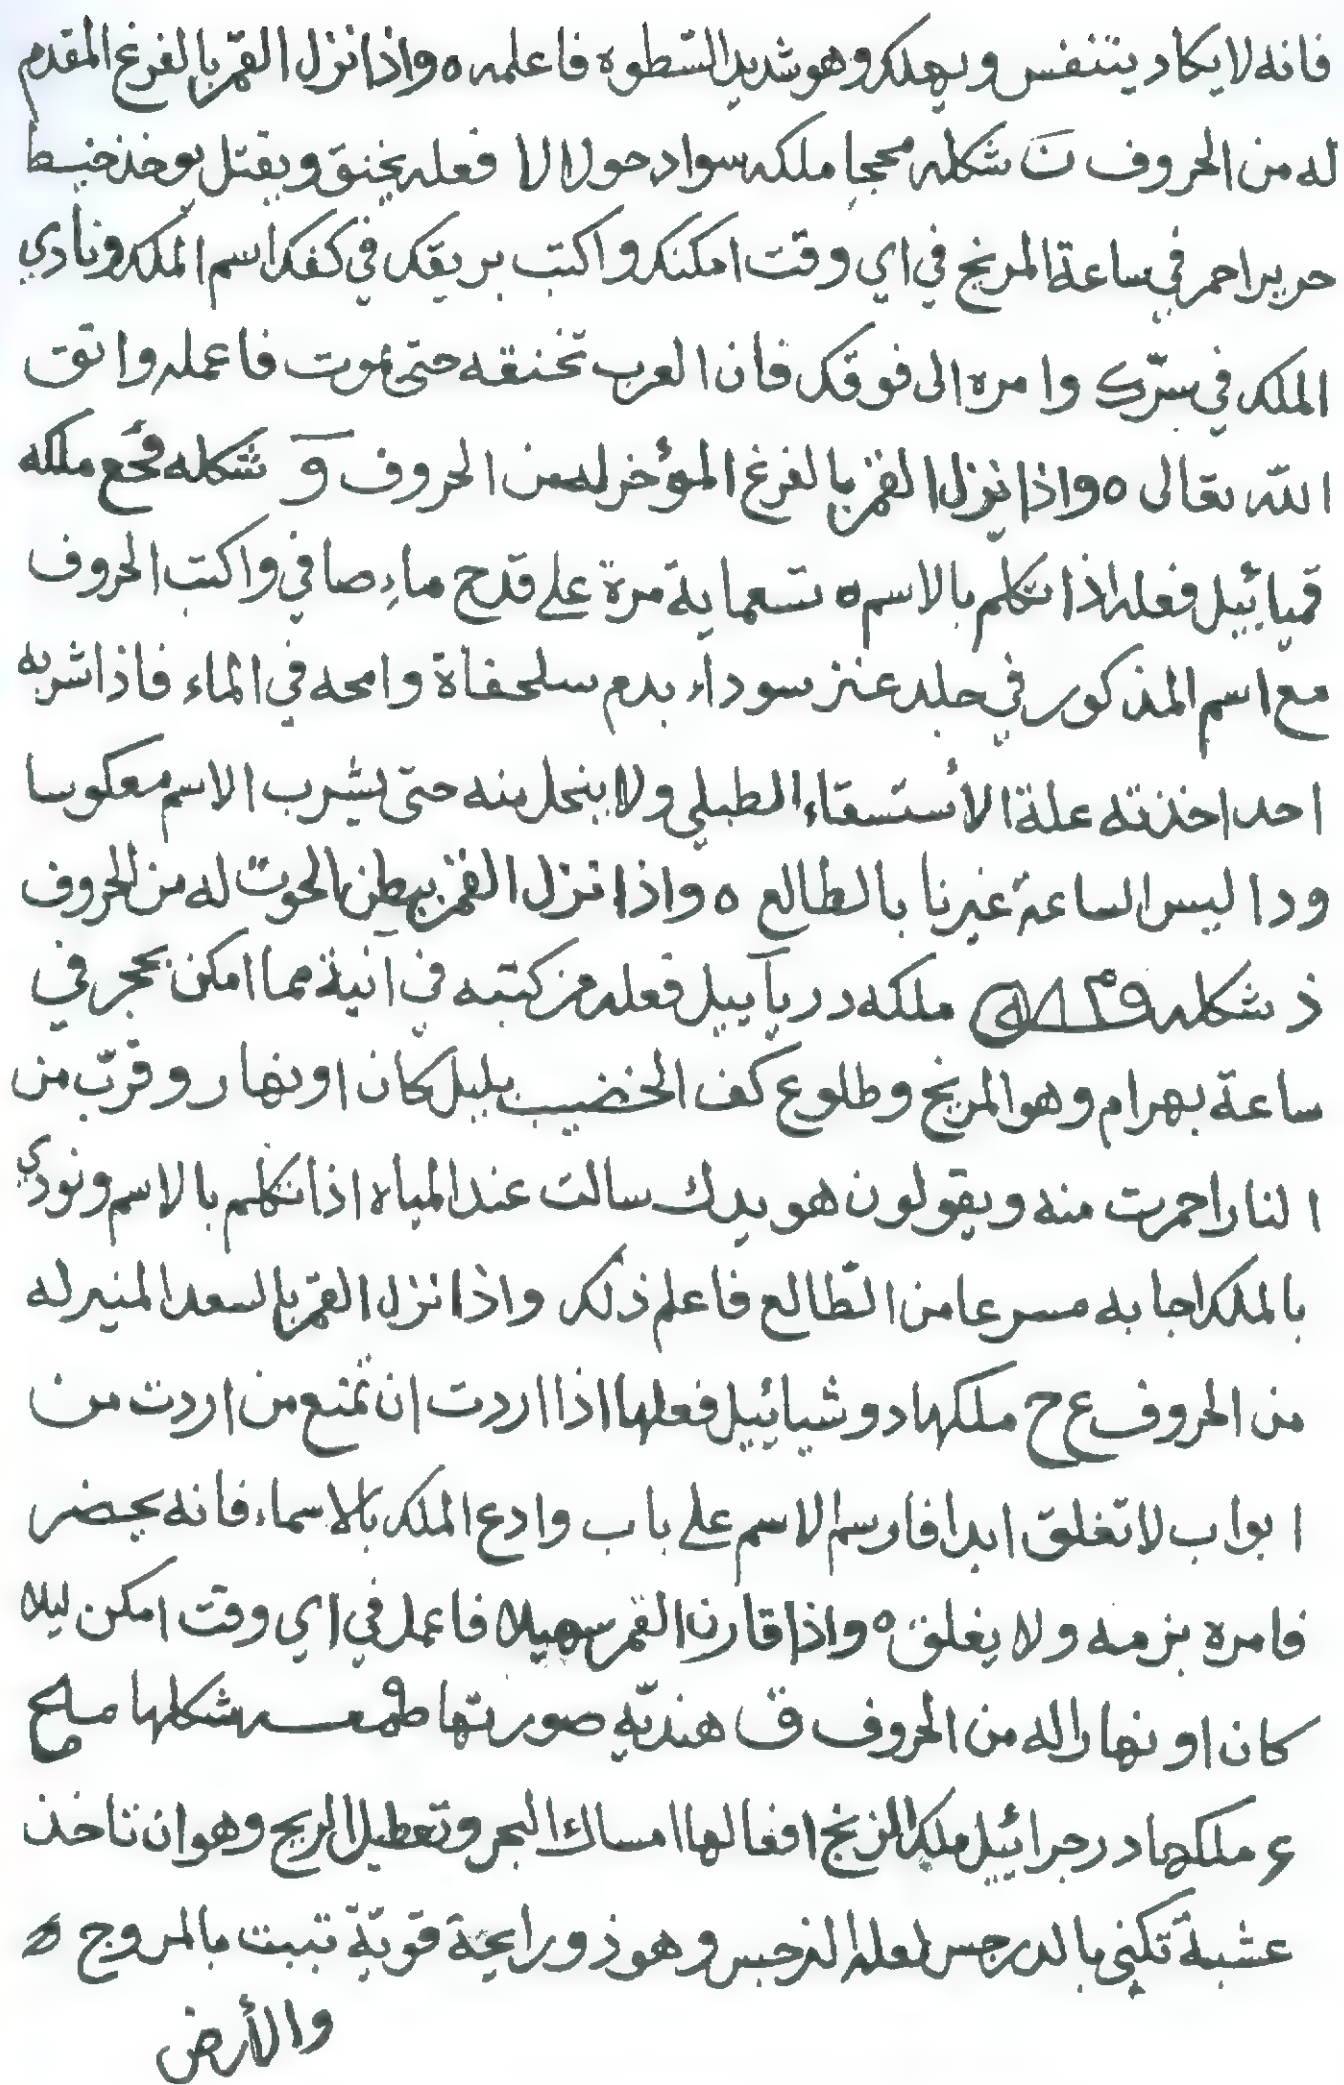 فانه لا يكاد يتنفس ويهلك وهو شديد السّطوه فاعلمه ه واذا نزل القمر بالفرغ المقدم
له من الحروف ن شكله محجبا ملكه سوادحولالا فعله يخنق ويقتل يوخذ خيط
حرير احمر في ساعة المريخ في اي وقت امكنك واكتب بريقك في كفك اسم الملك ونادي
الملك في سرّك وامره الى فوقك فان العرب تخنقه حتى يموت فاعمله واتق
الله تعالى ه واذا نزل القمر بالفرغ المؤخر له من الحروف و شكله ملكه
قميائيل فعله اذا تكلم بالاسم ه تسعماية مرة على قدح ماء صافي واكتب الحروف
مع اسم المذكور في جلد عنز سوداء بدم سلحفاة وامحه في الماء فاذا شربه
احد اخذته علة الأستسقاء الطبلي ولا ينحل منه حتى يشرب الاسم معكوسا
ودا ليس الساعة غيرنا بالطالع ه واذا نزل القمر ببطن الحوت له من الحروف
ذ شكله ملكه دريآييل فعله من كتبه في آنية مما امكن بحجر في
ساعة بهرام وهو المريخ وطلوع كف الخضيب بليل كان او نهار وقرّب من
النار احمرت منه ويقولون هو يدك سالت عند المياه اذا تكلم بالاسم ونودي
بالملك اجابه مسرعا من الطّالع فاعلم ذلك واذا نزل القمر بالسعد المنير له
من الحروف ع ح ملكها دوشيائيل فعلها اذا اردت ان تمنع من اردت من
ابواب لا تغلق ابدا فارسم الاسم على باب وادع الملك بالاسماء فانه يحضر
فامره بزمه ولا يغلق ه واذا قارن القمر سهيلا فاعمل في اي وقت امكن ليلا
كان او نهارا له من الحروف ق هنديّه صورتها شكلها
ع ملكها درجرائيل ملك الزنج افعالها امساك البحر وتعطيل الريح وهو ان تاخذ
عشبة تكنى بالدرجس لعله النرجس وهو ذو رايحة قويّة تنبت بالمروج ه
والأرض